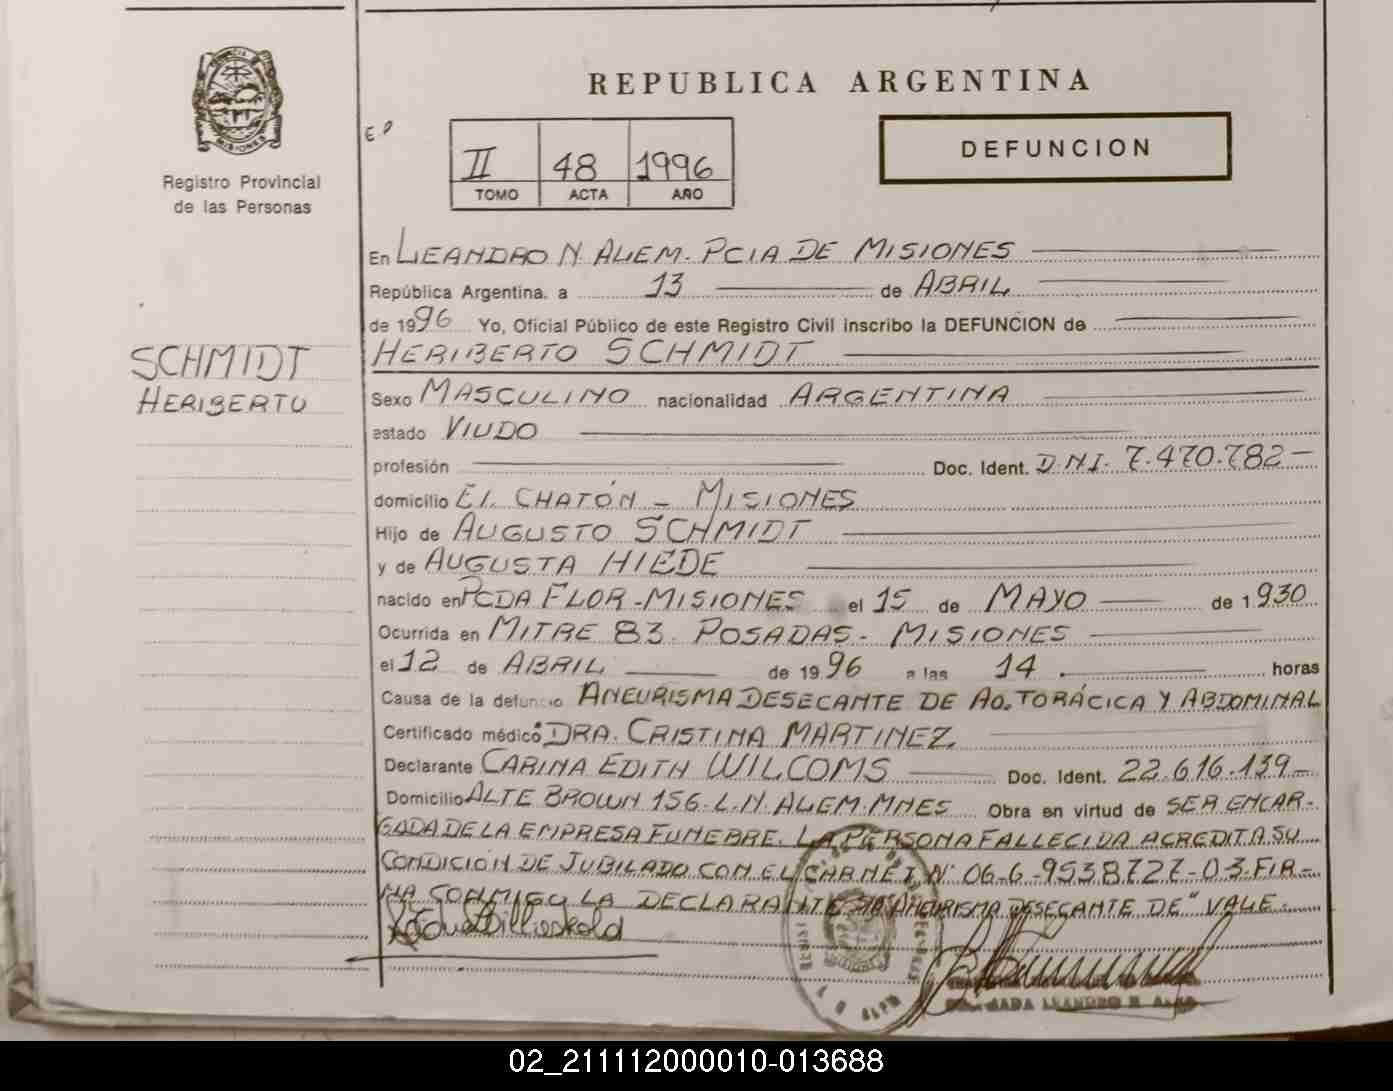 REPUBLICA ARGENTINA
E.P
II 48 1996
TOMO ACTA AÑO
DEFUNCION
MISIONES
Registro Provincial
de las Personas
En LEANDRO N. ALEM. PCIA DE MISIONES
República Argentina. a 13 de ABRIL
de 1996 Yo, Oficial Público de este Registro Civil inscribo la DEFUNCION de
HERIBERTO SCHMIDT
SCHMIDT
HERIBERTO
Sexo MASCULINO nacionalidad ARGENTINA
estado VIUDO
profesión Doc. Ident. D.N.I. 7.470.782
domicilio EL CHATÓN - MISIONES
Hijo de AUGUSTO SCHMIDT
y de AUGUSTA HIEDE
nacido en PCDA FLOR - MISIONES el 15 de MAYO de 1930
Ocurrida en MITRE 83. POSADAS - MISIONES
el 12 de ABRIL de 1996 a las 14 horas
Causa de la defunción ANEURISMA DESECANTE DE AO. TORÁCICA Y ABDOMINAL
Certificado médico DRA. CRISTINA MARTINEZ.
Declarante CARINA EDITH WILCOMS Doc. Ident. 22.616.139
Domicilio ALTE BROWN 156. L.N. ALEM. MNES Obra en virtud de SER ENCAR-
GADA DE LA EMPRESA FUNEBRE. LA PERSONA FALLECIDA ACREDITA SU
CONDICIÓN DE JUBILADO CON EL CARNET Nº 06-6-9538727-03. FIR-
MA CONMIGO LA DECLARANTE ANEURISMA DESECANTE DE" VALE.
LEANDRO N. ALEM
02_211112000010-013688